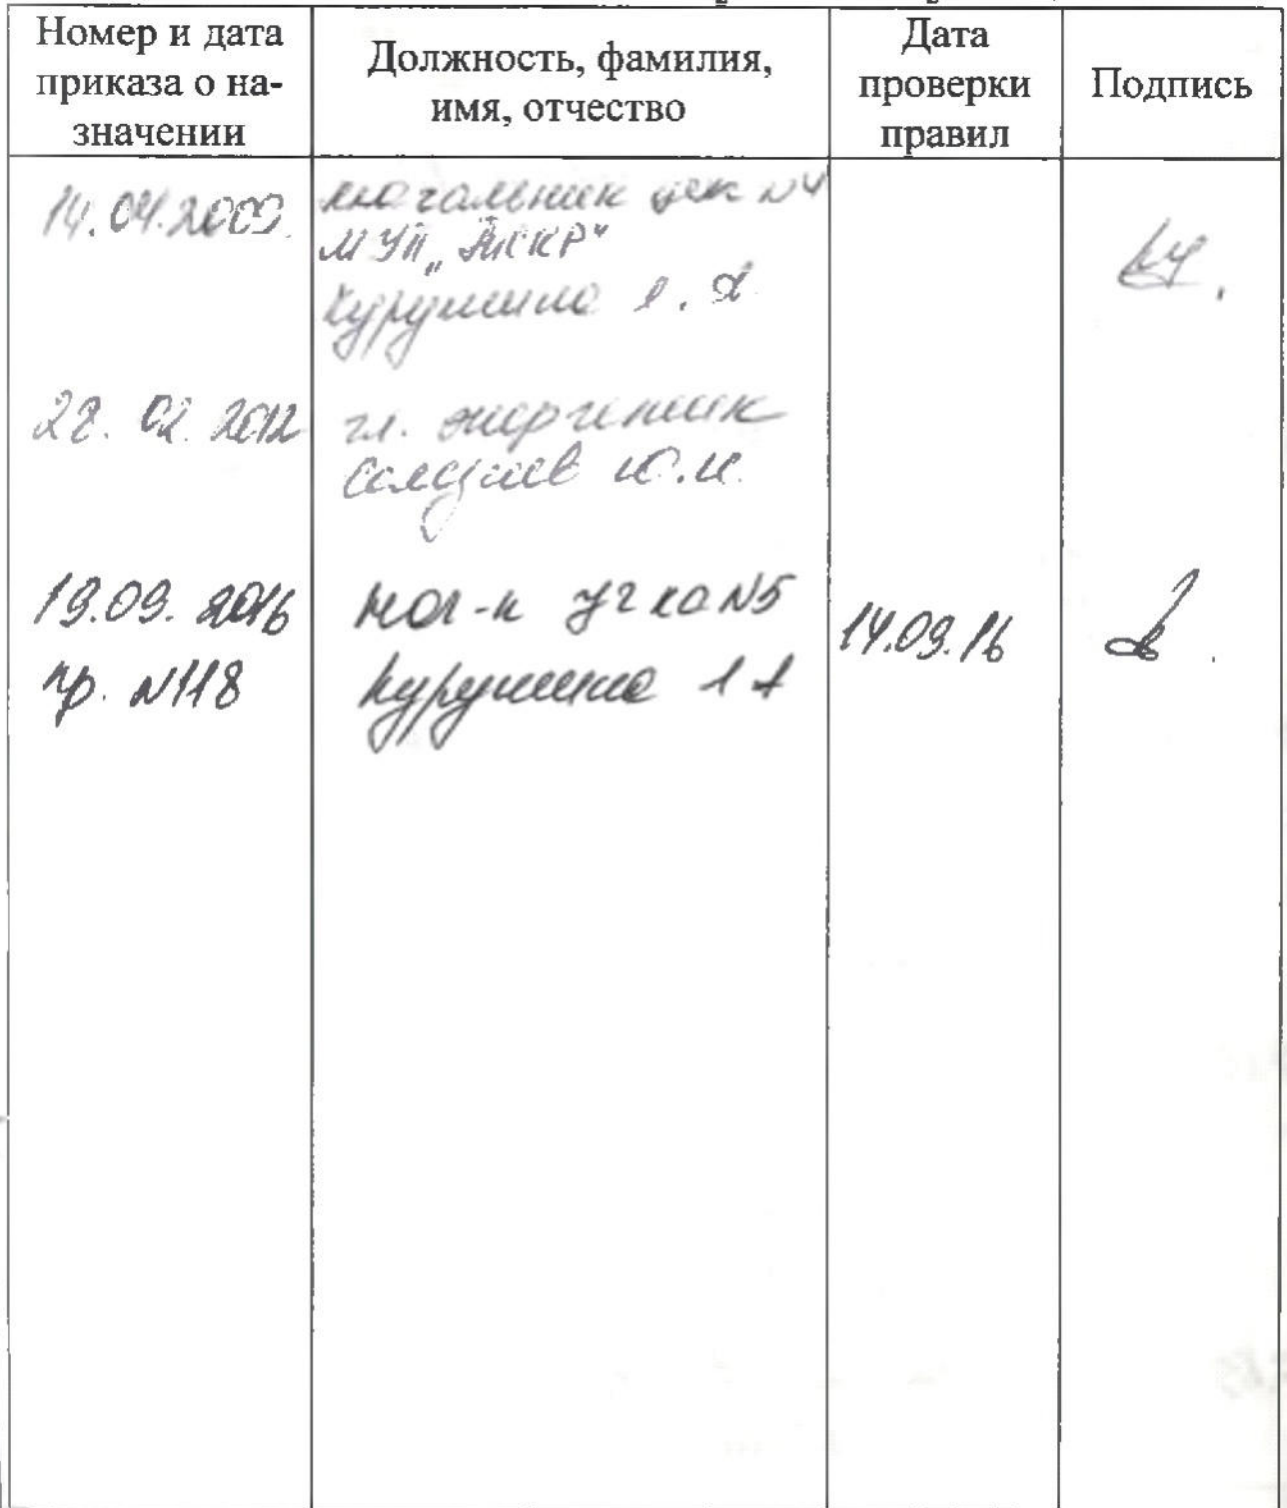 Номер и дата
приказа о на-
значении
Должность, фамилия,
имя, отчество
Дата
проверки
правил
Подпись
14.04.2009.
начальник цех №4
МУП „
Курушина
28. 02. 2012
гл. энергетик
Ю.И.
19.09.2016
пр. №118
Нач-к уч-ка №5
Курушина
14.09.16